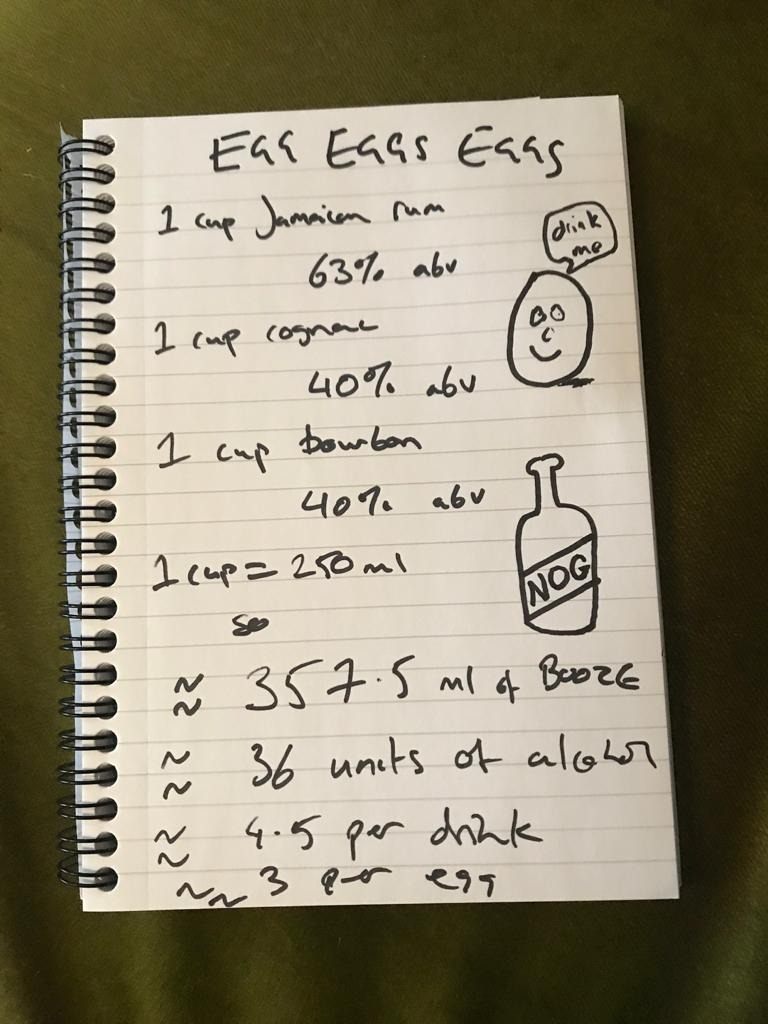 EGG EGGS EGGS
1 cup Jamaican rum
63% abv
drink
me
1 cup cognac
40% abv
1 cup bourbon
40% abv
1 cup = 250 ml
NOG
so
≈ 357.5 ml of BOOZE
≈ 36 units of alcohol
≈ 4.5 per drink
≈ 3 per egg